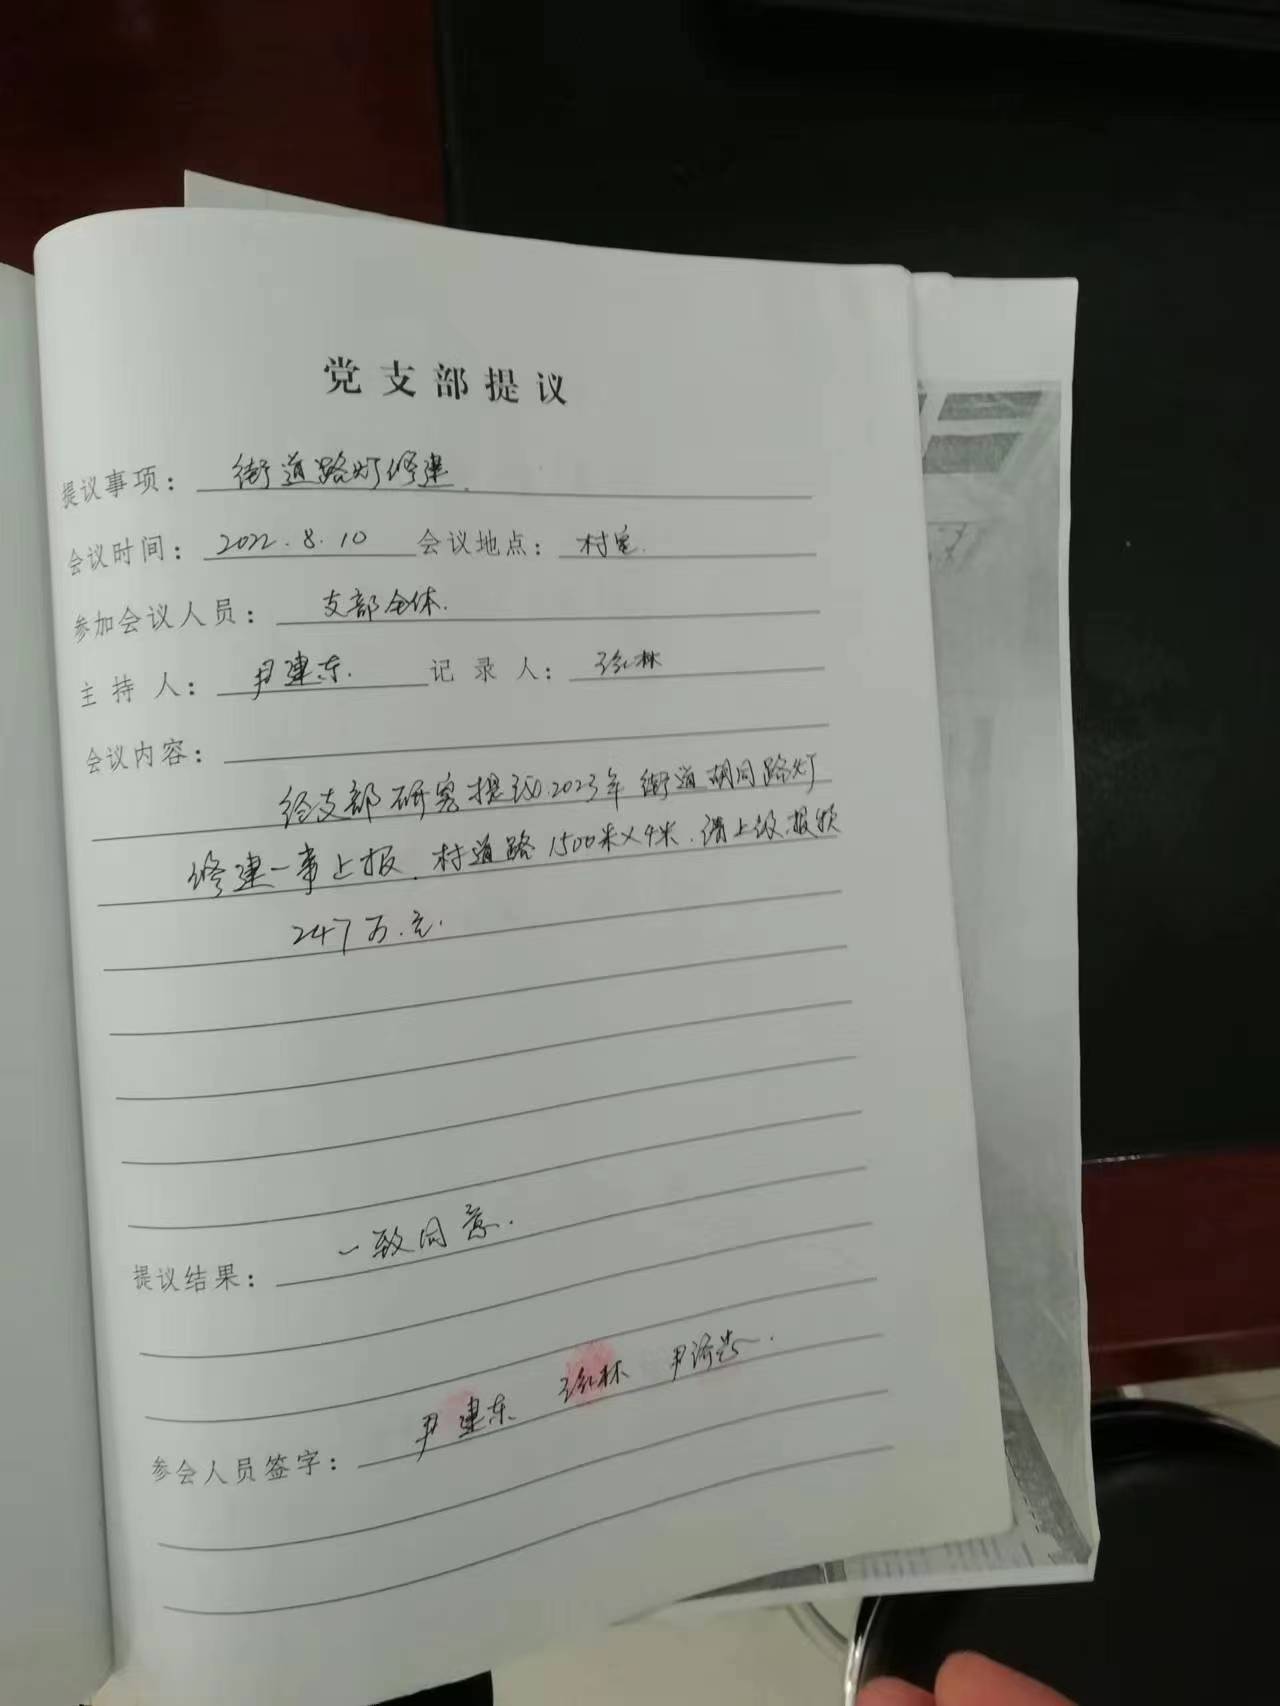 党支部提议
提议事项：街道路灯修建.
会议时间：2022.8.10 会议地点：村室.
参加会议人员：支部全体.
主持人：尹建东. 记录人：林
会议内容：
经支部研究提议.2023年街道胡同路灯
修建一事上报.村道路1500米×4米.请上级.报损
247万.元.
提议结果：一致同意.
参会人员签字：尹建东 林 尹